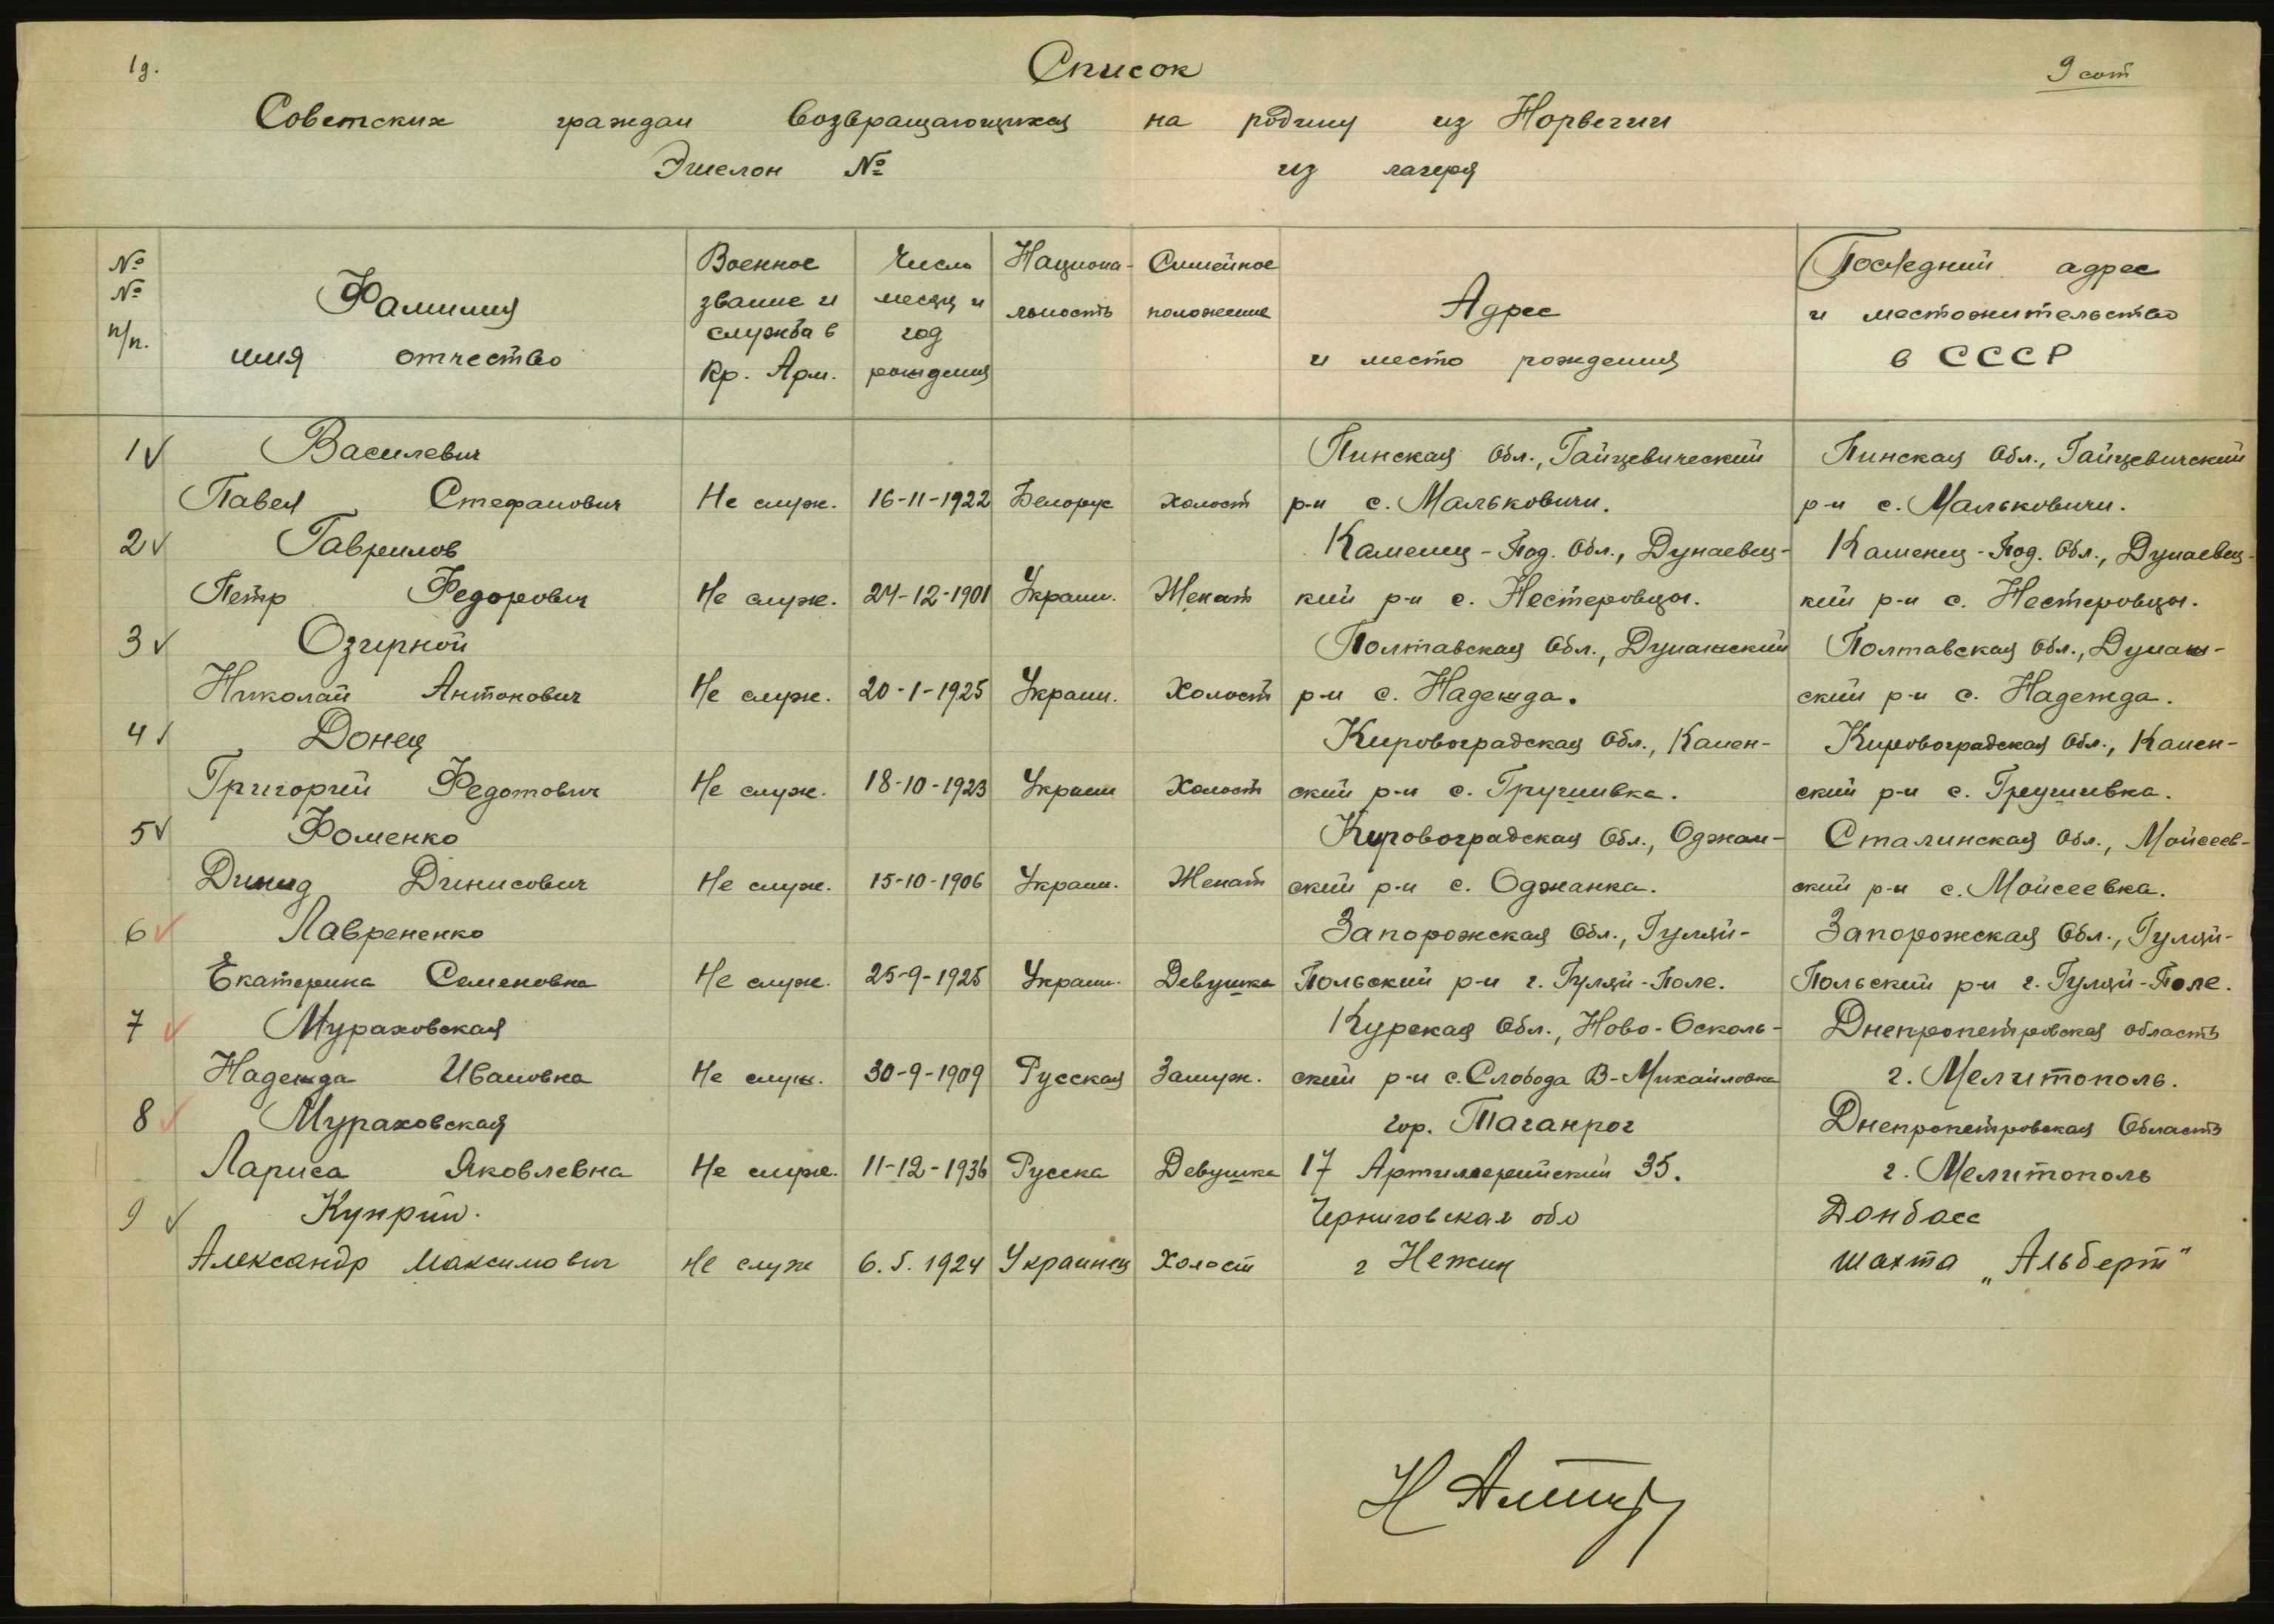 1д.
Список
9 сот
Советских граждан возвращающихся на родину из Норвегии
Эшелон № из лагеря
№ № п/п.
Фамилия имя отчество
Военное звание и служба в Кр. Арм.
Число месяц и год рождения
Национальность
Семейное положение
Адрес и место рождения
Последний адрес и местожительство в СССР
1 Василевич Пинская Обл., Гайцевический Пинская Обл., Гайцевичский
Павел Стефанович Не служ. 16-11-1922 Белорус холост р-н с. Мальковичи. р-н с. Мальковичи.
2 Гаврилов Каменец-Под. Обл., Дунаевец- Каменец-Под. Обл., Дунаевец-
Петр Федорович Не служ. 24-12-1901 Украин. Женат кий р-н с. Нестеровцы. кий р-н с. Нестеровцы.
3 Озирной Полтавская Обл., Полтавская Обл.,
Николай Антонович Не служ. 20-1-1925 Украин. Холост р-н с. Надежда. ский р-н с. Надежда.
4 Донец Кировоградская Обл., Камен- Кировоградская Обл., Камен-
Григорий Федотович Не служ. 18-10-1923 Украин Холост ский р-н с. Грушивка. ский р-н с. Грушивка.
5 Фоменко Кировоградская Обл., Оджам- Сталинская Обл., Мойсеев-
Динисович Не служ. 15-10-1906 Украин. Женат ский р-н с. Оджанка. ский р-н с. Мойсеевка.
6 Лаврененко Запорожская Обл., Гуляй- Запорожская Обл., Гуляй-
Екатерина Семеновна Не служ. 25-9-1925 Украин. Девушка Польский р-н г. Гуляй-Поле. Польский р-н г. Гуляй-Поле.
7 Мураховская Курская Обл., Ново-Осколь- Днепропетровская область
Надежда Ивановна Не служ. 30-9-1909 Русская Замуж. ский р-н с. Слобода В-Михайловка г. Мелитополь.
8 Мураховская гор. Таганрог Днепропетровская Область
Лариса Яковлевна Не служ. 11-12-1936 Русска Девушка 17 Артиллерийский 35. г. Мелитополь
9 Куприй. Черниговская обл Донбасс
Александр Максимович Не служ 6.5.1924 Украинец Холост г Нежин шахта „Альберт"